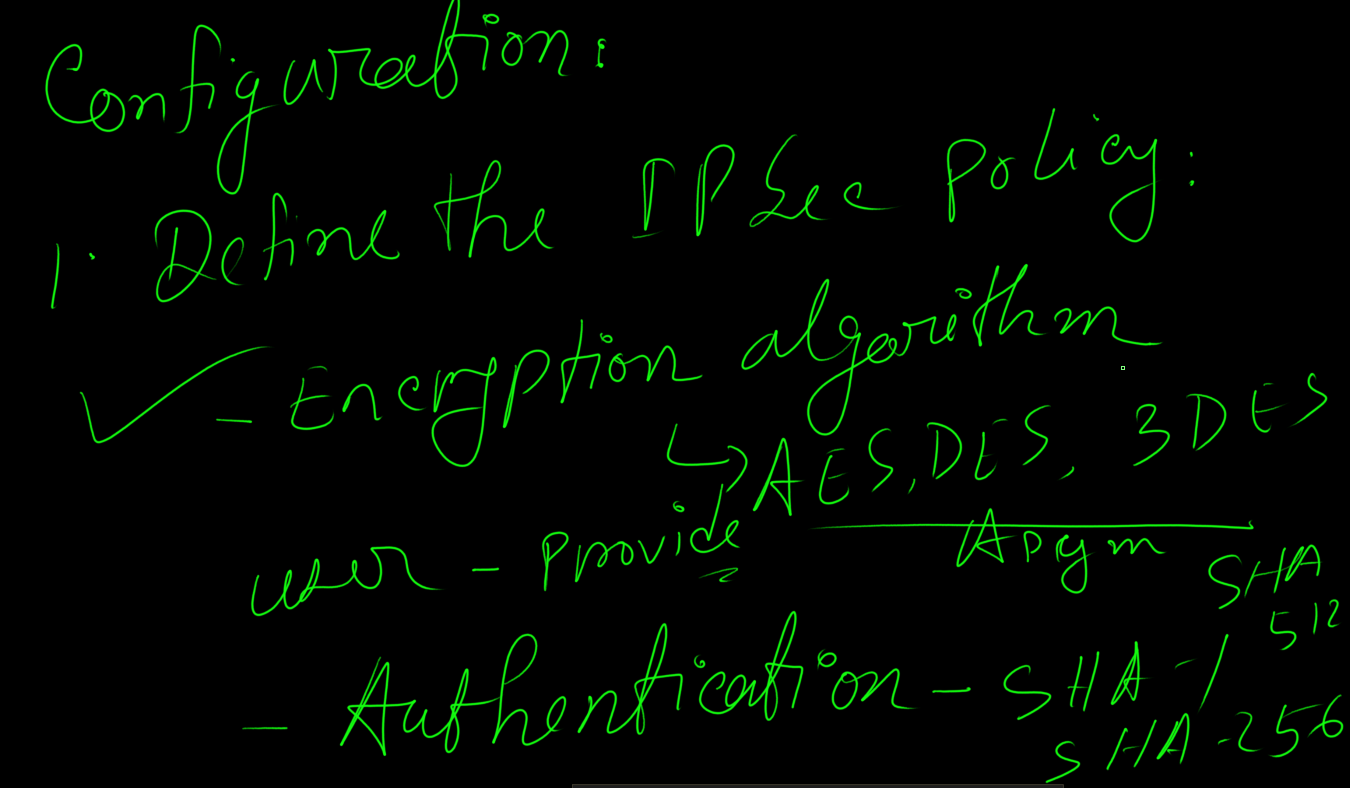 Configuration:
1. Define the IPSec Policy:
- Encryption algorithm
AES, DES, 3DES
user - Provide
SHA
512
- Authentication - SHA-1
SHA-256